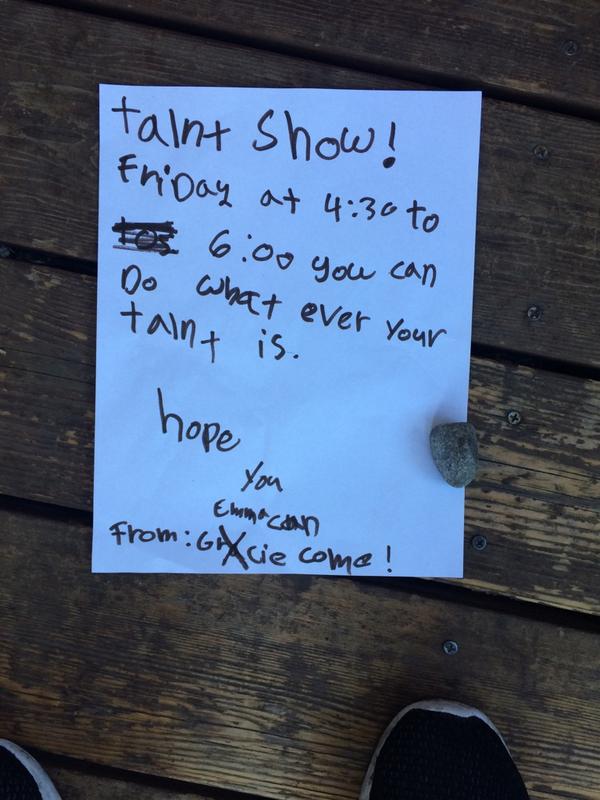 talnt Show!
FriDay at 4:30 to
6:00 you can
Do what ever your
talnt is.
hope
you
Emma can
From: Gracie come!